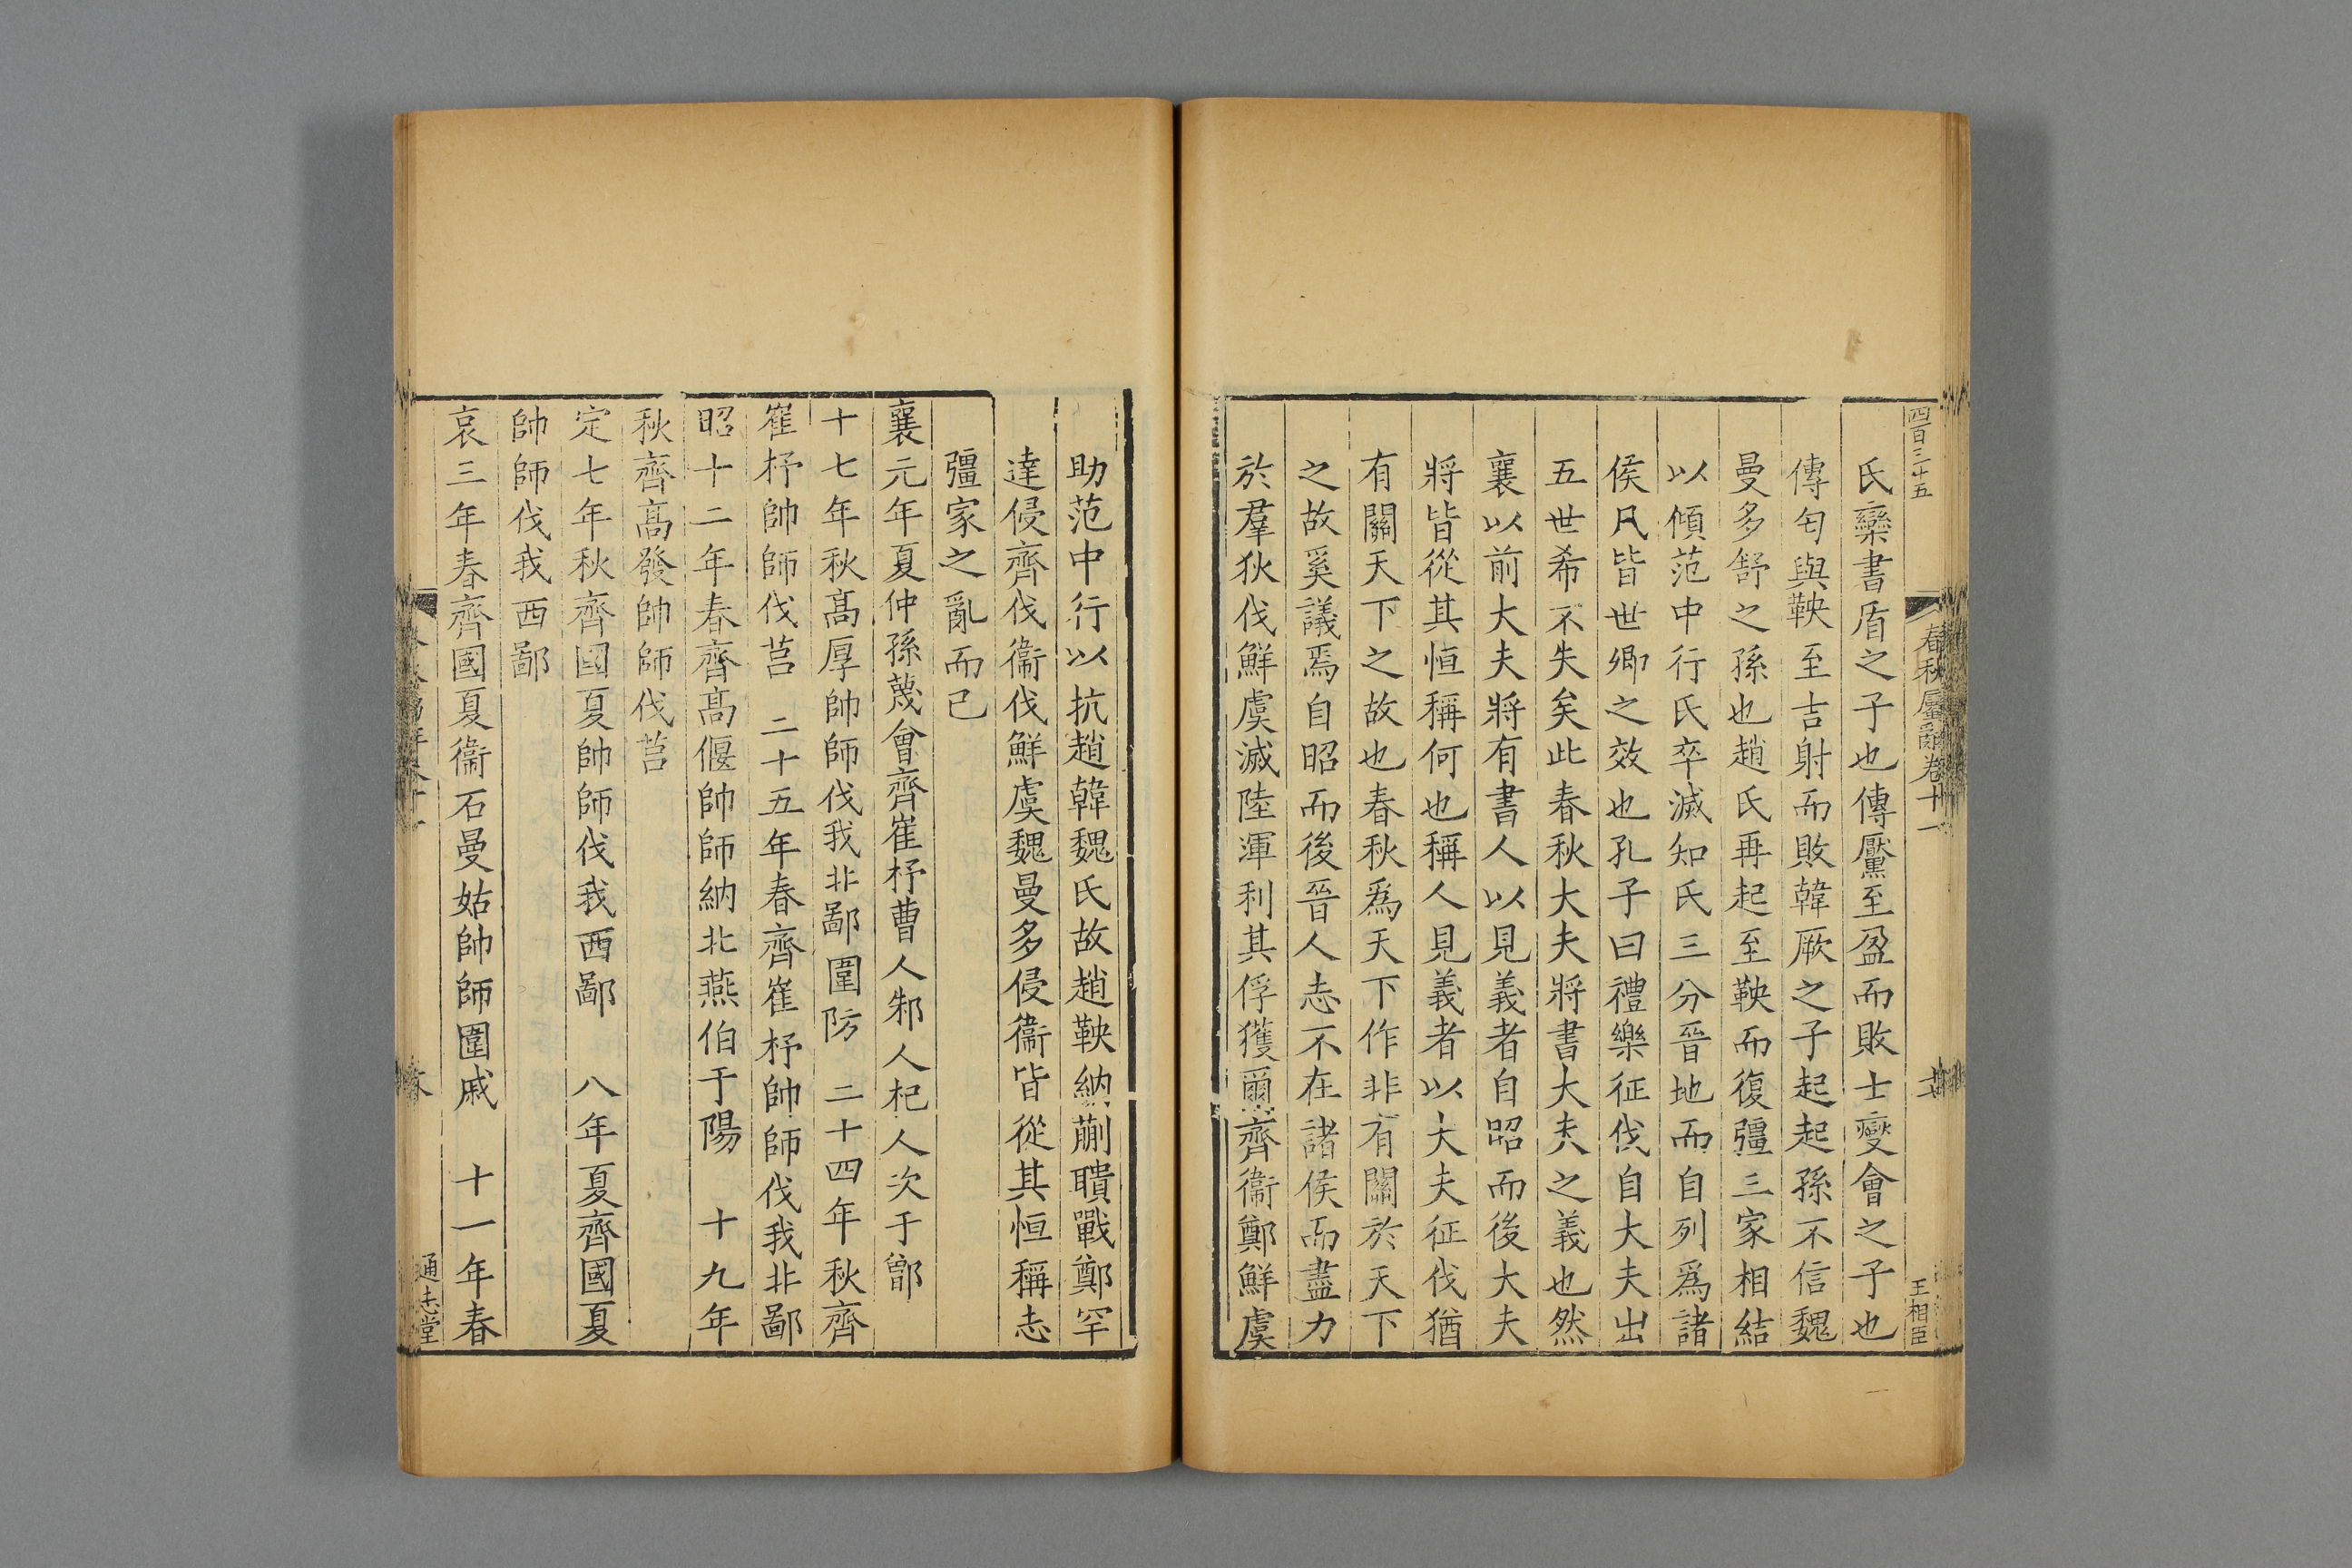 四百三十五
春秋屬辭卷十一
王相臣
氏欒書盾之子也傳黶至盈而敗士燮會之子也
傳匄與鞅至吉射而敗韓厥之子起起孫不信魏
曼多舒之孫也趙氏再起至鞅而復彊三家相結
以傾范中行氏卒滅知氏三分晉地而自列爲諸
侯凡皆世卿之效也孔子曰禮樂征伐自大夫出
五世希不失矣此春秋大夫將書大夫之義也然
襄以前大夫將有書人以見義者自昭而後大夫
將皆從其恒稱何也稱人見義者以大夫征伐猶
有關天下之故也春秋爲天下作非有關於天下
之故奚議焉自昭而後晉人志不在諸侯而盡力
於羣狄伐鮮虞滅陸渾利其俘獲爾齊衞鄭鮮虞
助范中行以抗趙韓魏氏故趙鞅納蒯聵戰鄭罕
達侵齊伐衞伐鮮虞魏曼多侵衞皆從其恒稱志
彊家之亂而已
襄元年夏仲孫蔑會齊崔杼曹人邾人杞人次于鄫
十七年秋髙厚帥師伐我北鄙圍防 二十四年秋齊
崔杼帥師伐莒 二十五年春齊崔杼帥師伐我北鄙
昭十二年春齊髙偃帥師納北燕伯于陽 十九年
秋齊髙發帥師伐莒
定七年秋齊國夏帥師伐我西鄙 八年夏齊國夏
帥師伐我西鄙
哀三年春齊國夏衞石曼姑帥師圍戚 十一年春
通志堂